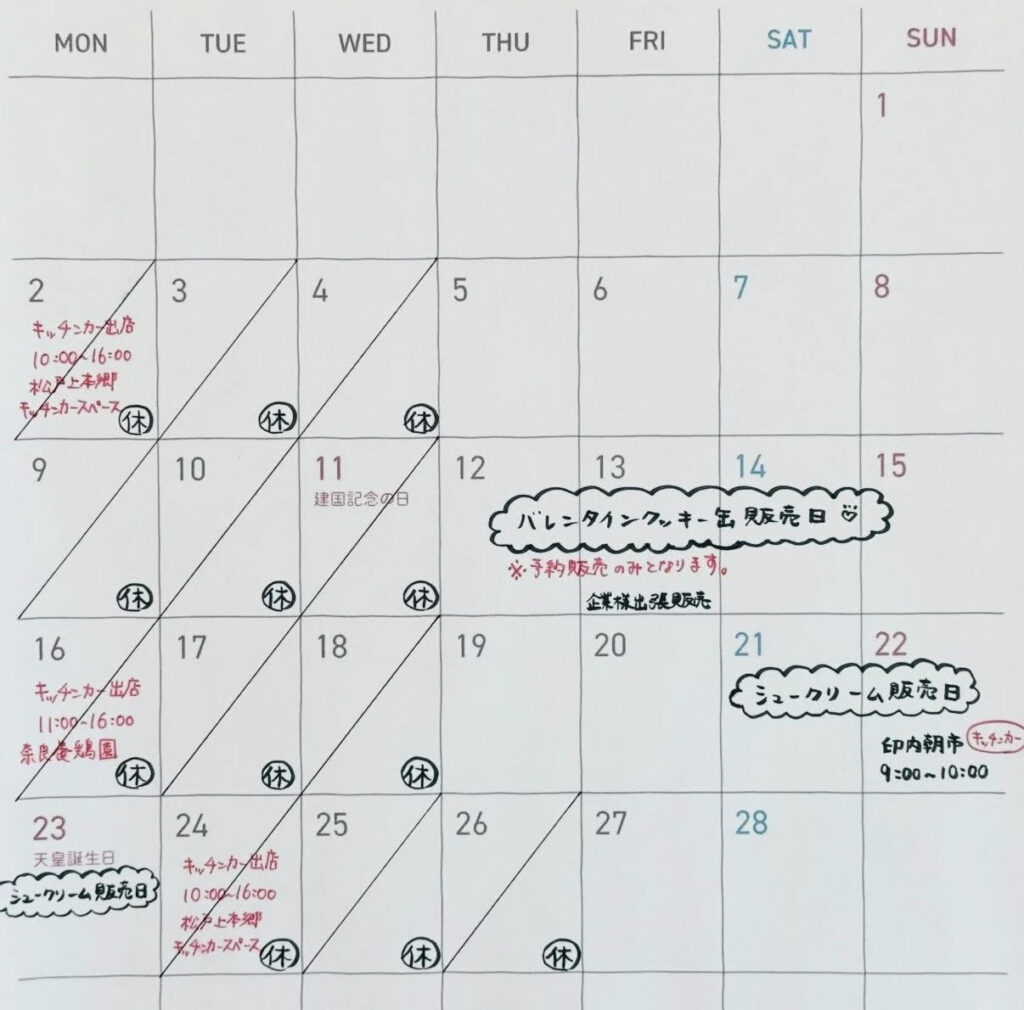 MON TUE WED THU FRI SAT SUN
1
2 3 4 5 6 7 8
キッチンカー出店
10:00~16:00
松戸上本郷
キッチンカースペース
休 休 休
9 10 11 12 13 14 15
建国記念の日
バレンタインクッキー缶販売日
※予約販売のみとなります。
企業様出張販売
休 休 休
16 17 18 19 20 21 22
キッチンカー出店
11:00~16:00
奈良養鶏園
シュークリーム販売日
印内朝市 キッチンカー
9:00~10:00
休 休 休
23 24 25 26 27 28
天皇誕生日
シュークリーム販売日
キッチンカー出店
10:00~16:00
松戸上本郷
キッチンカースペース
休 休 休